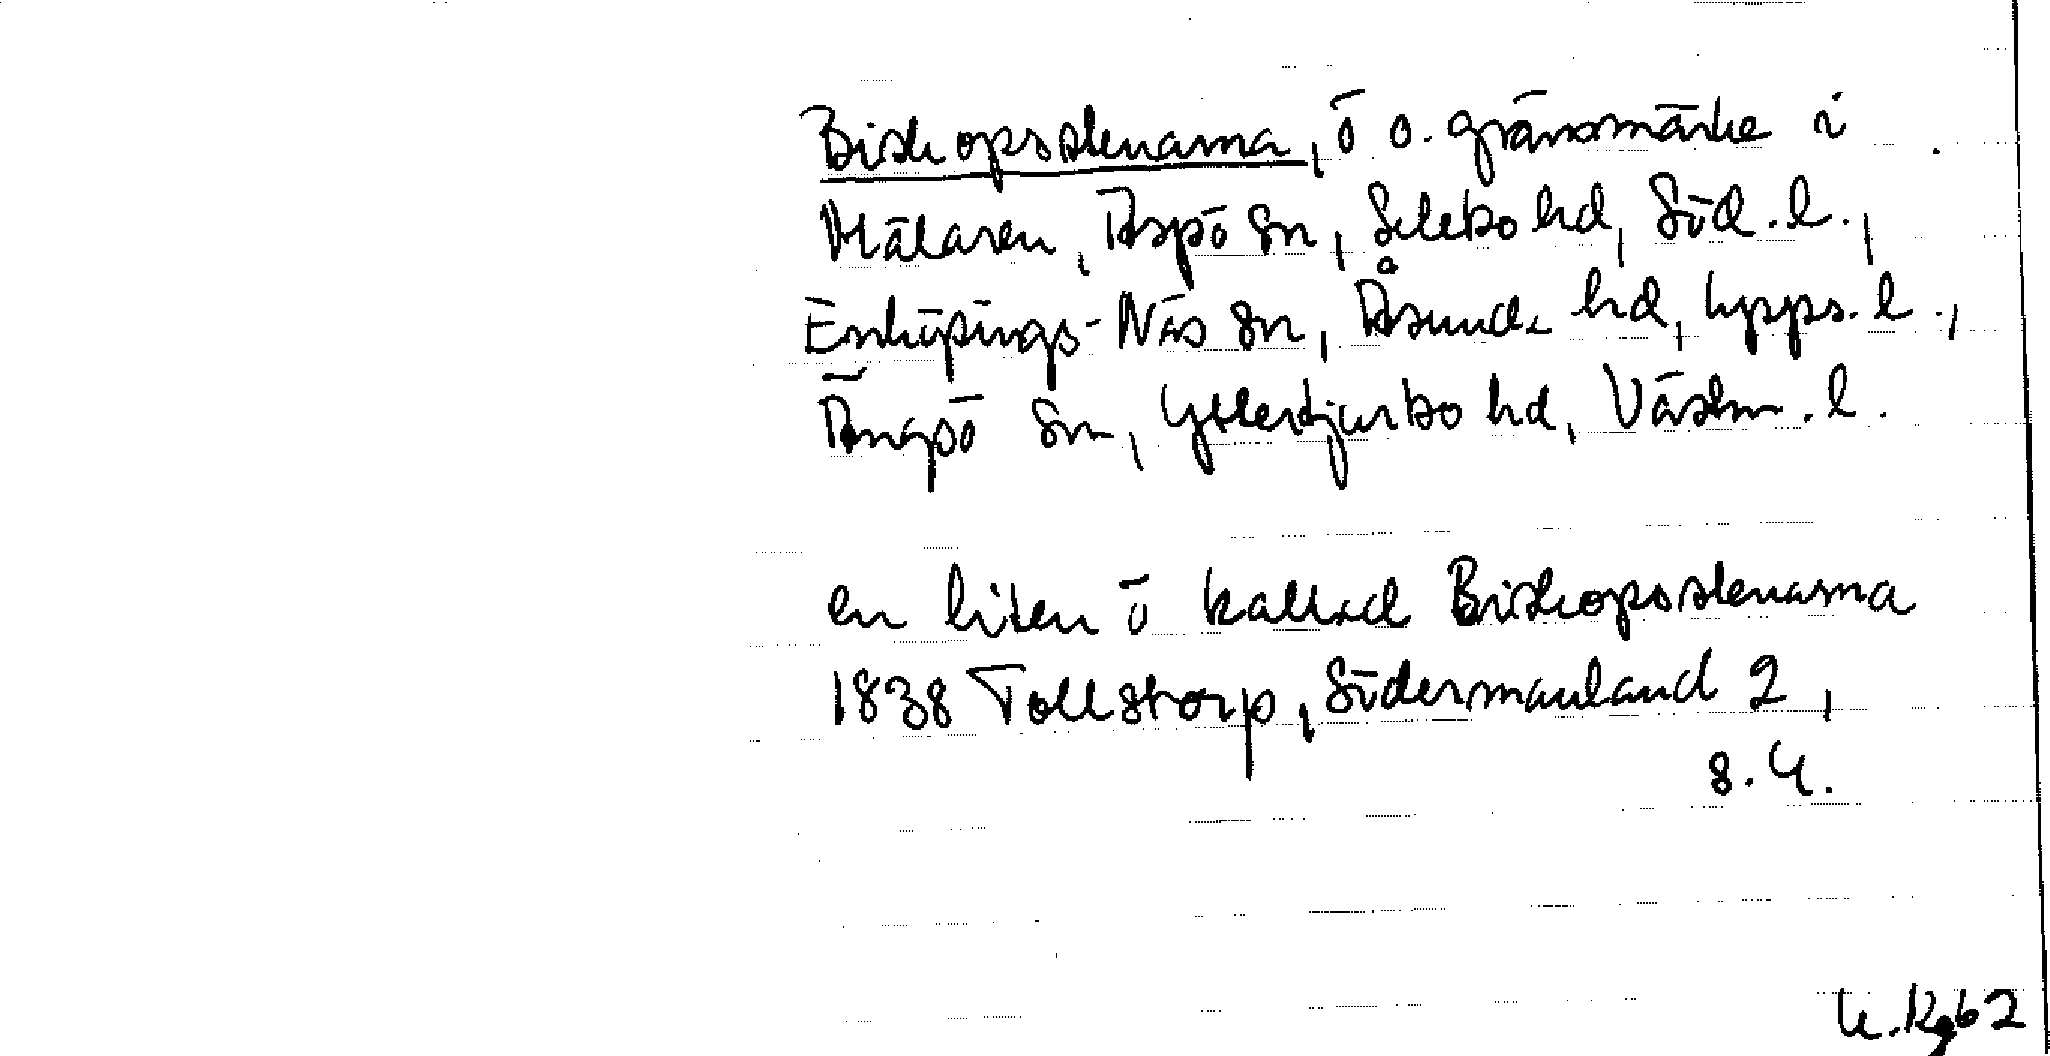 Biskopsstenarna, ö o. gränsmärke i
Mälaren, Aspö sn, Selebo hd, Söd. l.,
Enköpings-Näs sn, Åsunda hd, Upps. l.,
Ängsö sn, Yttertjurbo hd, Västm. l.
en liten ö kallad Biskopsstenarna
1838 Tollstorp, Södermanland 2,
s. 4.